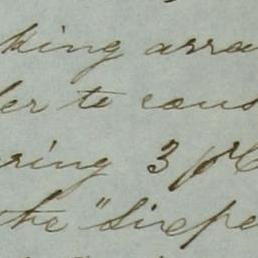 king arra
er to cous
ring 3 pr C
the "Sirepe